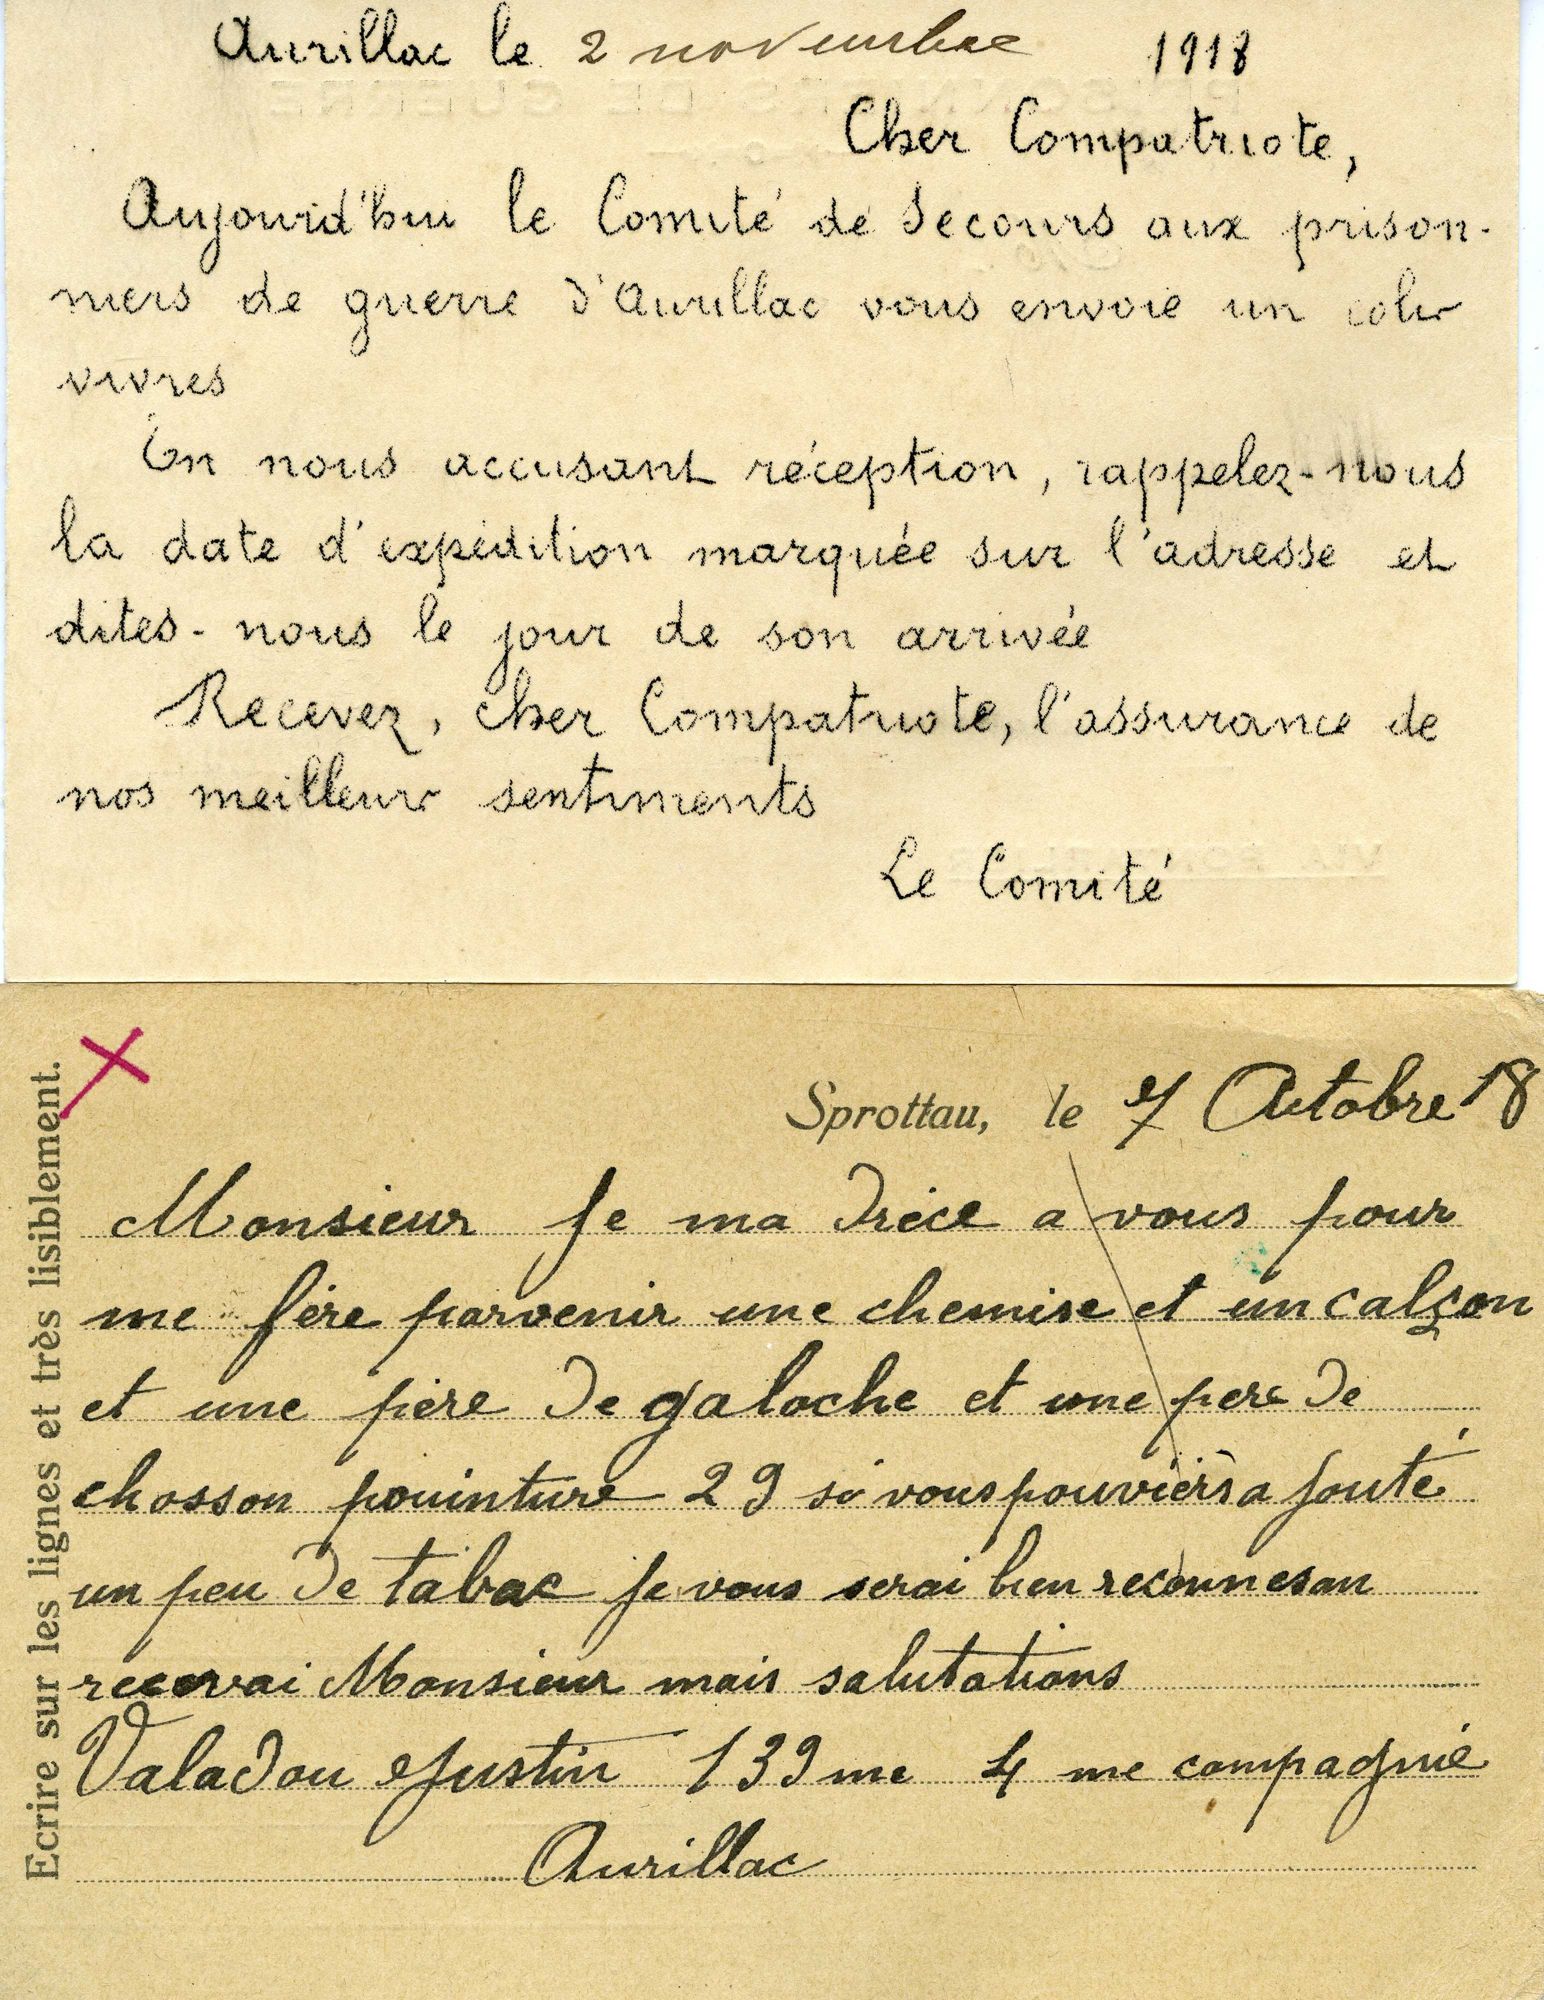 Aurillac le 2 novembre 1918
Cher Compatriote,
Aujourd'hui le Comité de Secours aux prison-
niers de guerre d'Aurillac vous envoie un colis
vivres
En nous accusant réception, rappelez-nous
la date d'expédition marquée sur l'adresse et
dites-nous le jour de son arrivée
Recevez, cher Compatriote, l'assurance de
nos meilleurs sentiments
Le Comité
Ecrire sur les lignes et très lisiblement.
Sprottau, le 7 Octobre 18
Monsieur Je ma drèce a vous pour
me fère parvenir une chemise et un calson
et une père de galoche et une père de
chosson pouinture 29 si vous pouvièrs a jouté
un peu de tabac je vous serai bien reconnesan
recevai Monsieur mais salutations
Valadou Justin 139 me 4 me compagnie
Aurillac